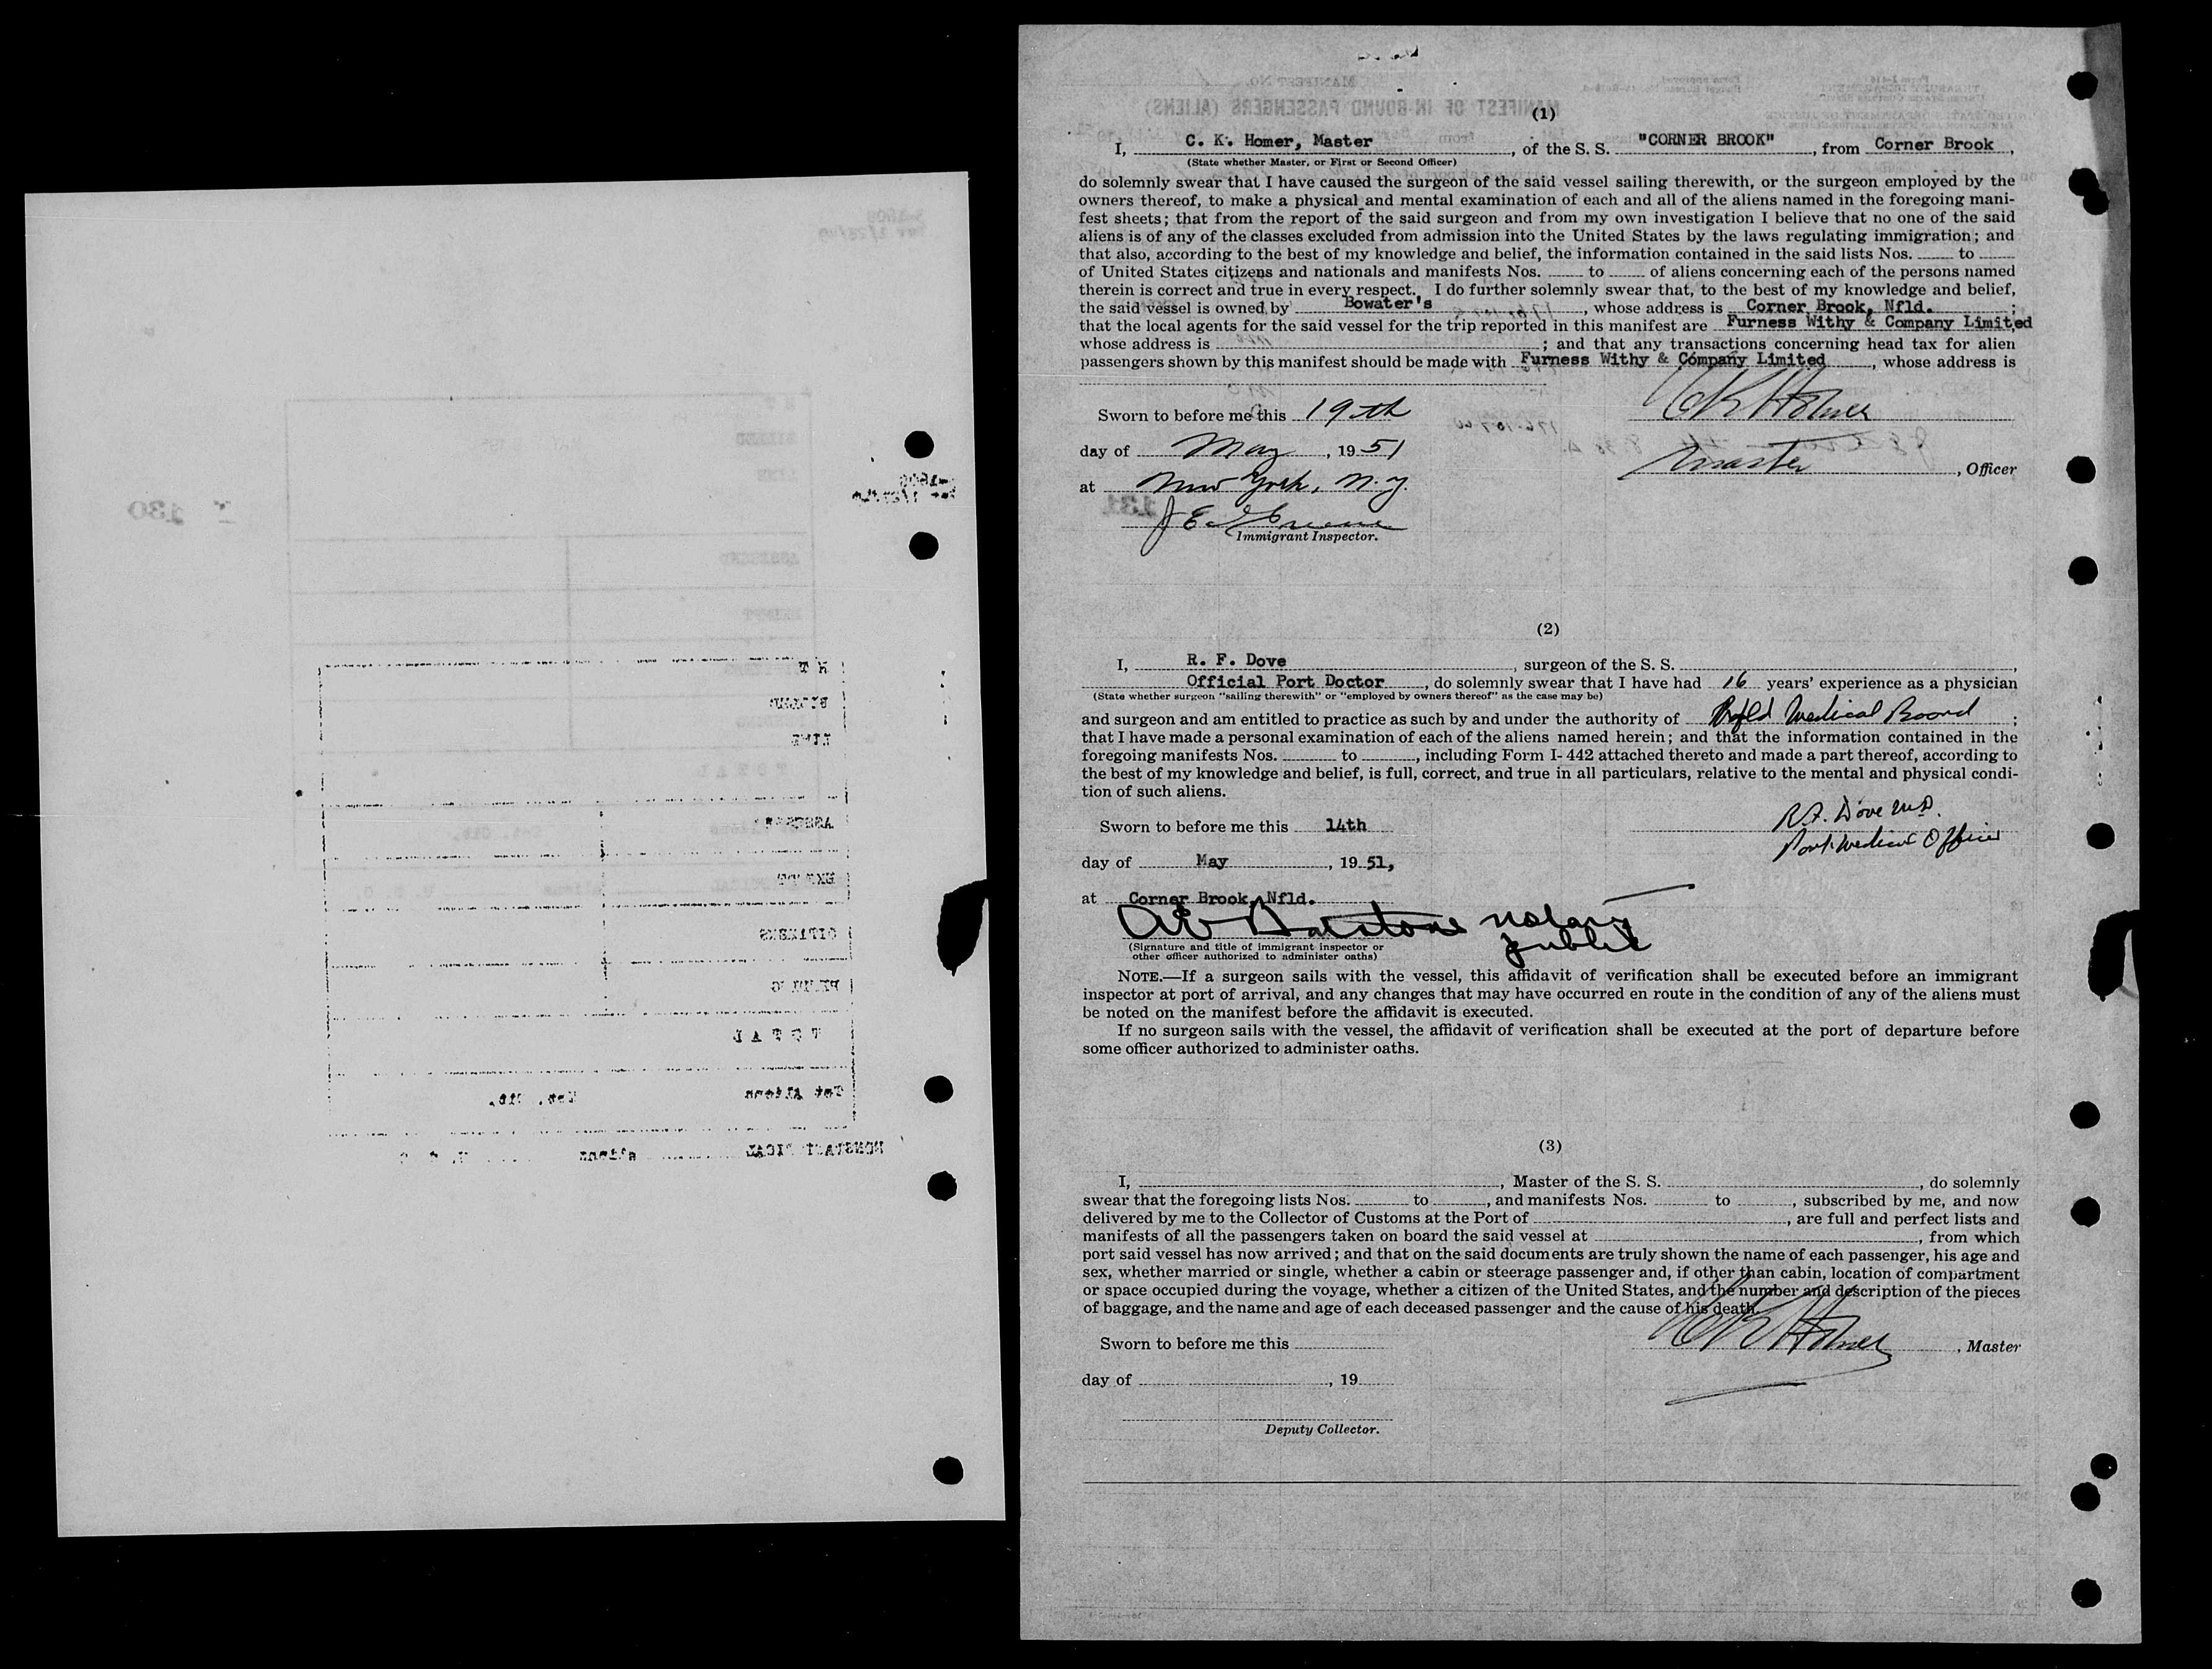 (1)
I, C. K. Homer, Master, of the S. S. "CORNER BROOK", from Corner Brook,
(State whether Master, or First or Second Officer)
do solemnly swear that I have caused the surgeon of the said vessel sailing therewith, or the surgeon employed by the
owners thereof, to make a physical and mental examination of each and all of the aliens named in the foregoing mani-
fest sheets; that from the report of the said surgeon and from my own investigation I believe that no one of the said
aliens is of any of the classes excluded from admission into the United States by the laws regulating immigration; and
that also, according to the best of my knowledge and belief, the information contained in the said lists Nos. ____ to ____
of United States citizens and nationals and manifests Nos. ____ to ____ of aliens concerning each of the persons named
therein is correct and true in every respect. I do further solemnly swear that, to the best of my knowledge and belief,
the said vessel is owned by Bowater's, whose address is Corner Brook, Nfld.;
that the local agents for the said vessel for the trip reported in this manifest are Furness Withy & Company Limited
whose address is ____; and that any transactions concerning head tax for alien
passengers shown by this manifest should be made with Furness Withy & Company Limited, whose address is
Sworn to before me this 19th
C K Homer
day of May, 1951
Master, Officer
at New York, N.Y.
Immigrant Inspector.
(2)
I, R. F. Dove, surgeon of the S. S. ____,
Official Port Doctor, do solemnly swear that I have had 16 years' experience as a physician
(State whether surgeon "sailing therewith" or "employed by owners thereof" as the case may be)
and surgeon and am entitled to practice as such by and under the authority of Nfld Medical Board;
that I have made a personal examination of each of the aliens named herein; and that the information contained in the
foregoing manifests Nos. ____ to ____, including Form I-442 attached thereto and made a part thereof, according to
the best of my knowledge and belief, is full, correct, and true in all particulars, relative to the mental and physical condi-
tion of such aliens.
R.F. Dove M.D.
Sworn to before me this 14th
Port Medical Officer
day of May, 1951,
at Corner Brook, Nfld.
notary
public
(Signature and title of immigrant inspector or
other officer authorized to administer oaths)
NOTE.—If a surgeon sails with the vessel, this affidavit of verification shall be executed before an immigrant
inspector at port of arrival, and any changes that may have occurred en route in the condition of any of the aliens must
be noted on the manifest before the affidavit is executed.
If no surgeon sails with the vessel, the affidavit of verification shall be executed at the port of departure before
some officer authorized to administer oaths.
(3)
I, ____, Master of the S. S. ____, do solemnly
swear that the foregoing lists Nos. ____ to ____, and manifests Nos. ____ to ____, subscribed by me, and now
delivered by me to the Collector of Customs at the Port of ____, are full and perfect lists and
manifests of all the passengers taken on board the said vessel at ____, from which
port said vessel has now arrived; and that on the said documents are truly shown the name of each passenger, his age and
sex, whether married or single, whether a cabin or steerage passenger and, if other than cabin, location of compartment
or space occupied during the voyage, whether a citizen of the United States, and the number and description of the pieces
of baggage, and the name and age of each deceased passenger and the cause of his death.
Sworn to before me this ____
C K Homer, Master
day of ____, 19
Deputy Collector.